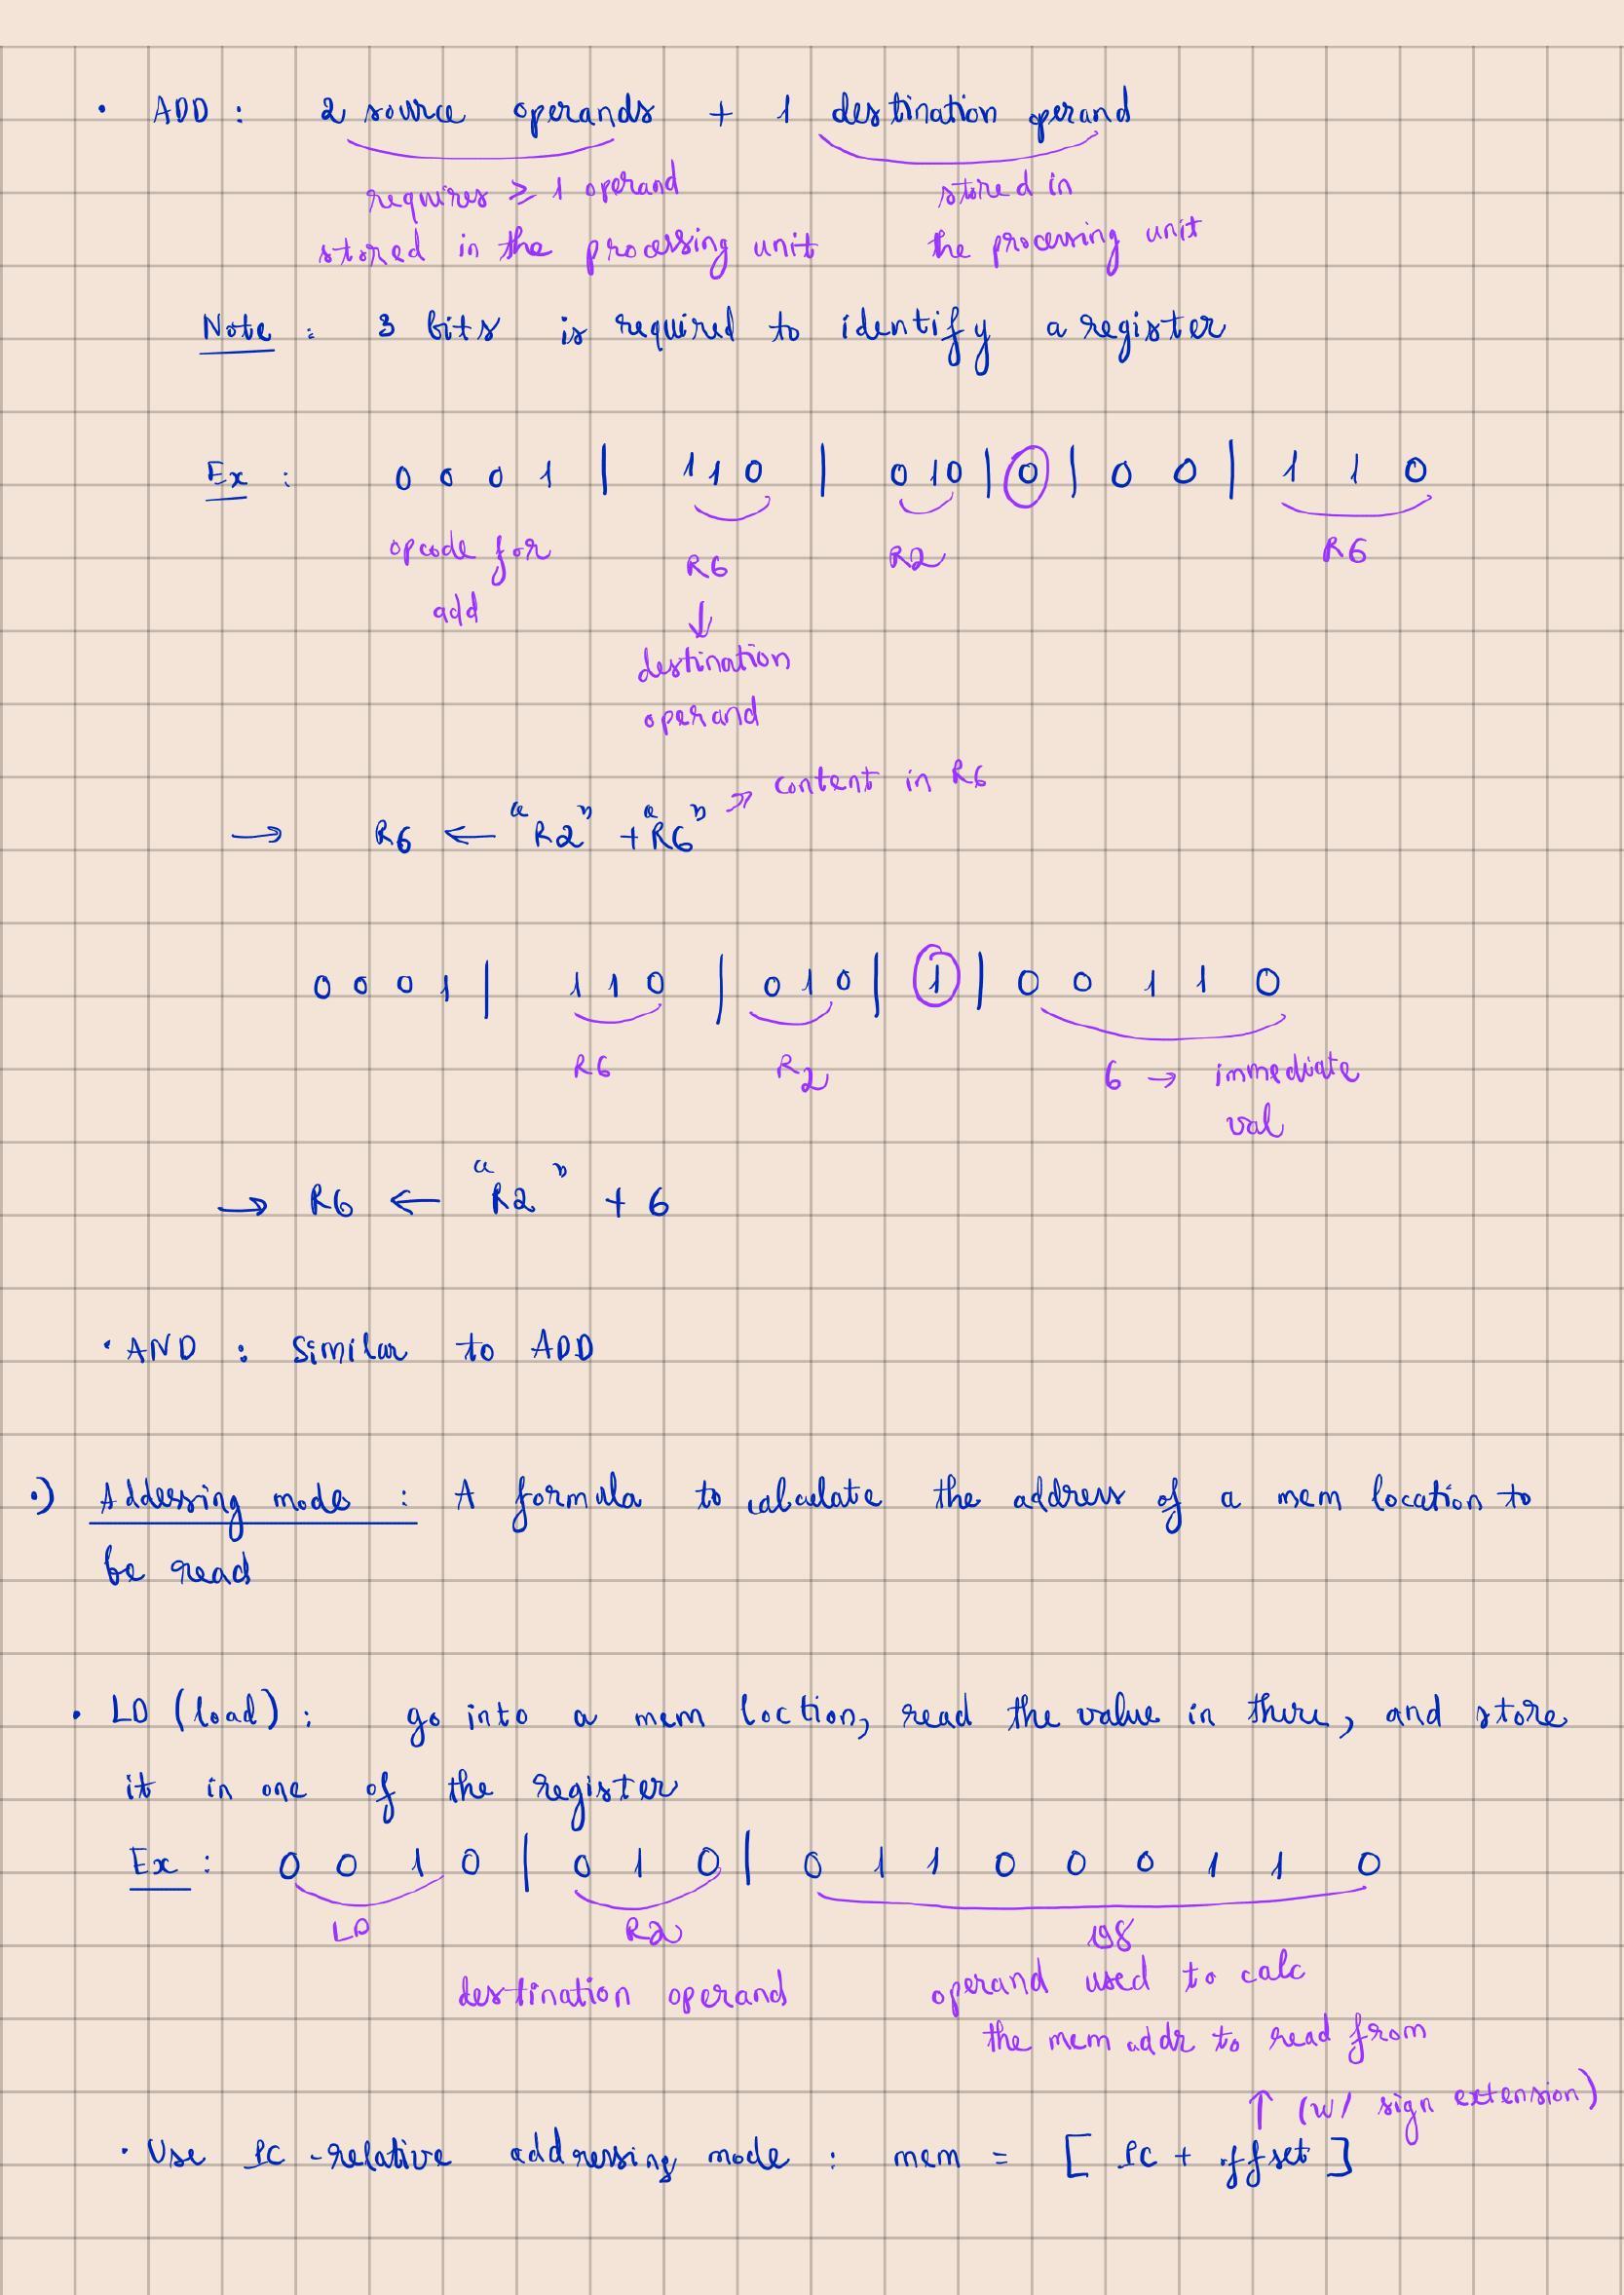 • ADD : 2 source operands + 1 destination operand
requires ≥ 1 operand stored in
stored in the processing unit the processing unit
Note : 3 bits is required to identify a register
Ex : 0 0 0 1 | 1 1 0 | 0 1 0 | 0 | 0 0 | 1 1 0
opcode for R6 R2 R6
add ↓
destination
operand
→ R6 ← "R2" + "R6" → content in R6
0 0 0 1 | 1 1 0 | 0 1 0 | 1 | 0 0 1 1 0
R6 R2 6 → immediate
val
→ R6 ← "R2" + 6
• AND : Similar to ADD
•) Addessing mode : A formula to calculate the address of a mem location to
be read
• LD (load) : go into a mem loction, read the value in there, and store
it in one of the register
Ex : 0 0 1 0 | 0 1 0 | 0 1 1 0 0 0 1 1 0
LD R2 198
destination operand operand used to calc
the mem addr to read from
↑ (w/ sign extension)
• Use PC -relative addressing mode : mem = [ PC + offset ]